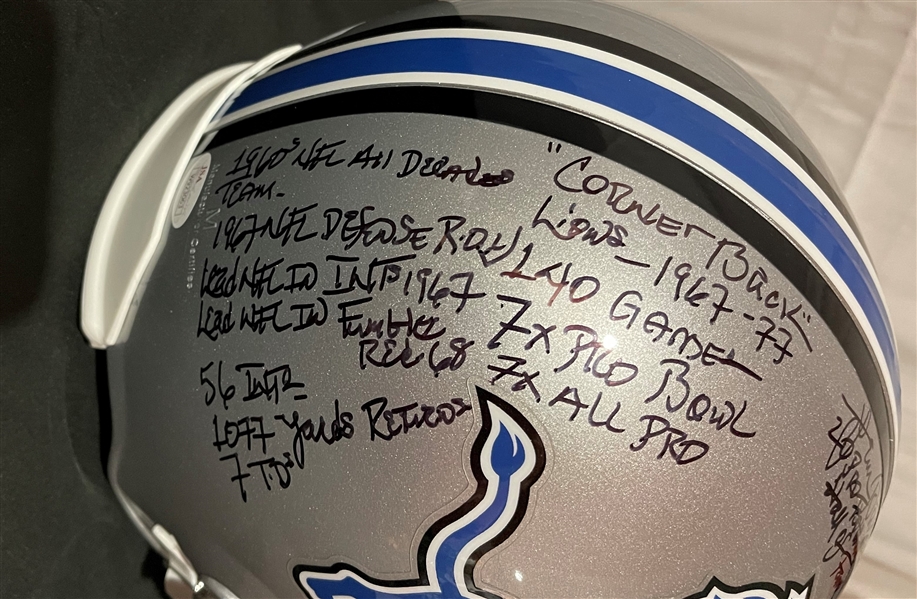 1960's NFL All Decades
Team -
1967 NFL DEFENSE R.O.Y
Lead NFL IN INTS 1967
Lead NFL IN Fumble
REC 68
56 INTS
1077 Yards Returns
7 T.D's
"CORNER BACK"
Lions - 1967-77
140 GAMES
7x PRO BOWL
7x ALL PRO